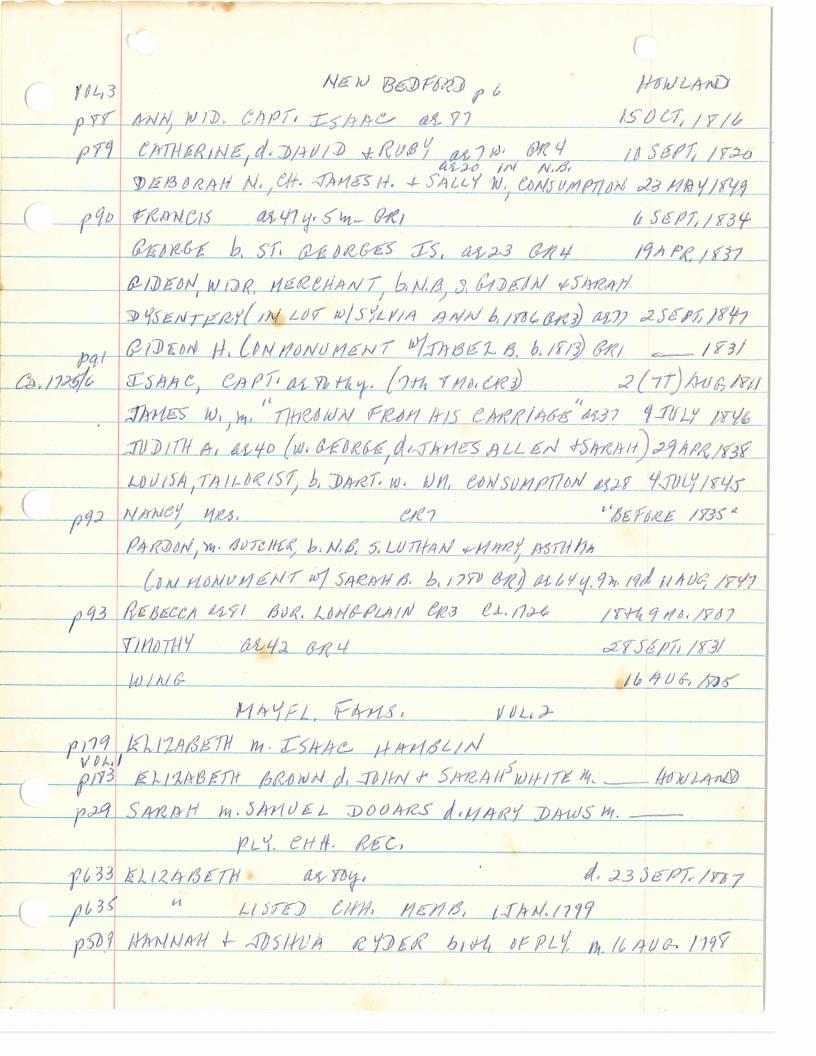 NEW BEDFORD p 6 HOWLAND
VOL. 3
p88 ANN, WID. CAPT. ISAAC ae 87 15 OCT. 1816
p89 CATHERINE, d. DAVID & RUBY ae 7 w. GR4 10 SEPT. 1820
ae20 IN N.B.
DEBORAH N., CH. JAMES H. & SALLY W., CONSUMPTION 23 MAY 1849
p90 FRANCIS ae 47 y. 5 m- GR1 6 SEPT. 1834
GEORGE b. ST. GEORGES IS. ae 23 GR4 19 APR. 1837
GIDEON, WIDR. MERCHANT, b. N.B, S. GIDEON & SARAH
DYSENTERY (IN LOT W/ SYLVIA ANN b. 1806 GR3) ae 77 2 SEPT. 1847
p91 GIDEON H. (ON MONUMENT W/ JABEL B. b. 1813) GR1 — 1831
Ca. 1725/6 ISAAC, CAPT. ae 80thy. (7th 8 MO. CR3) 2 (7T) AUG. 1811
JAMES W., m. "THROWN FROM HIS CARRIAGE" ae 37 9 JULY 1846
JUDITH A. ae 40 (w. GEORGE, d. JAMES ALLEN & SARAH) 29 APR. 1838
LOUISA, TAILORIST, b. DART. w. WM. CONSUMPTION ae 28 4 JULY 1845
p92 NANCY, MRS. CR7 "BEFORE 1835"
PARDON, m. BUTCHER, b. N.B, S. LUTHAN & MARY, ASTHMA
(ON MONUMENT W/ SARAH B. b. 1780 GR1) ae 64 y. 9 m. 19 d 11 AUG. 1847
p93 REBECCA ae 81 BUR. LONGPLAIN CR3 Ca. 1726 18th 9 MO. 1807
TIMOTHY ae 42 GR4 28 SEPT. 1831
WING 16 AUG.
MAYFL. FAMS. VOL. 2
p179 ELIZABETH m. ISAAC HAMBLIN
VOL. 1
p183 ELIZABETH BROWN d. JOHN & SARAH⁵ WHITE m. — HOWLAND
p29 SARAH m. SAMUEL DOOARS d. MARY DAWS m. —
PLY. CHH. REC.
p633 ELIZABETH ae 80y. d. 23 SEPT. 1807
p635 " LISTED CHH. MEMB. 1 JAN. 1799
p509 HANNAH & JOSHUA RYDER both OF PLY. m. 16 AUG. 1798